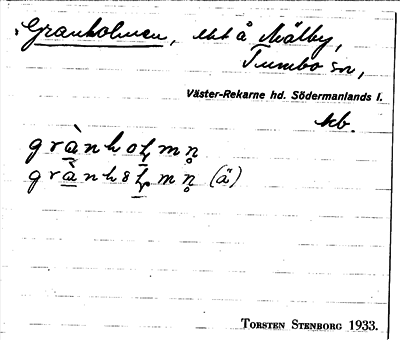 Granholmen, ut å Mälby,
Tumbo sn,
Väster-Rekarne hd. Södermanlands l.
grànhoɫmn̥
grành8ɫmn̥ (ä)
TORSTEN STENBORG 1933.